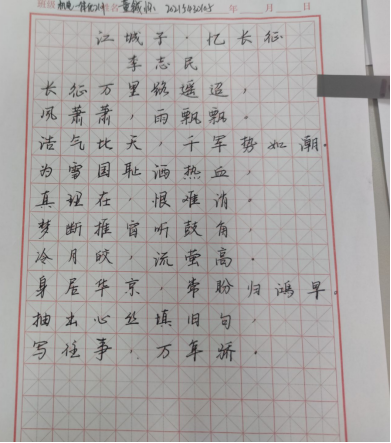 班级 机电一体化 姓名 董 年 月 日
江城子·忆长征
李志民
长征万里路遥迢,
风萧萧,雨飘飘。
浩气比天,千军势如潮。
为雪国耻洒热血,
真理在,恨难消。
梦断推窗听鼓角,
冷月皎,流萤高。
身居华京,常盼归鸿早。
抽出心丝填旧句,
写往事,万年骄。